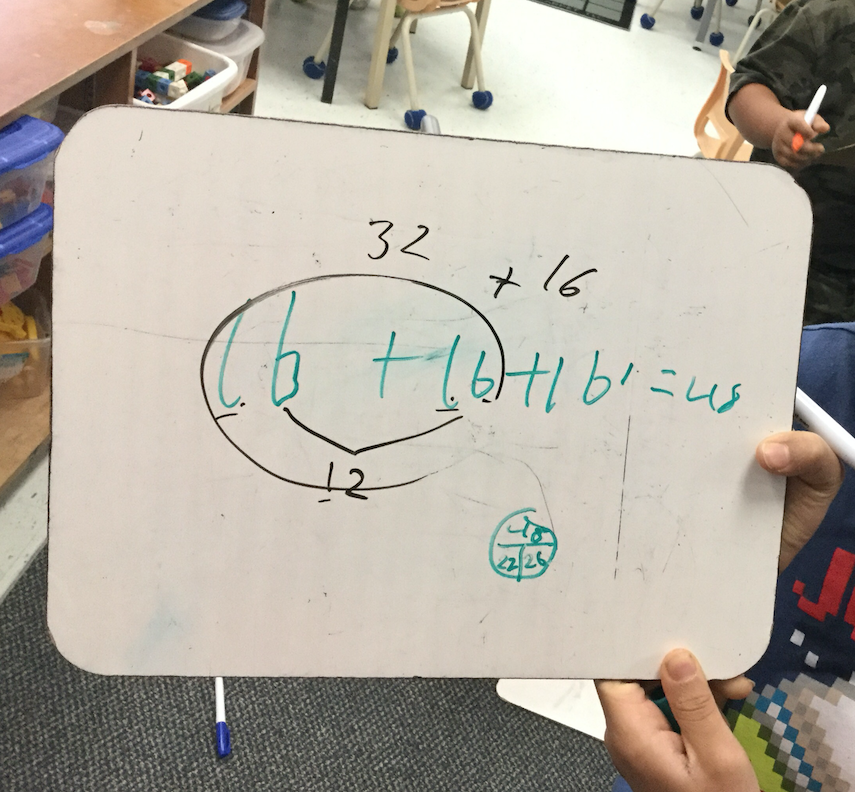 32
+ 16
16 + 16 + 16 = 48
12
48
22 26